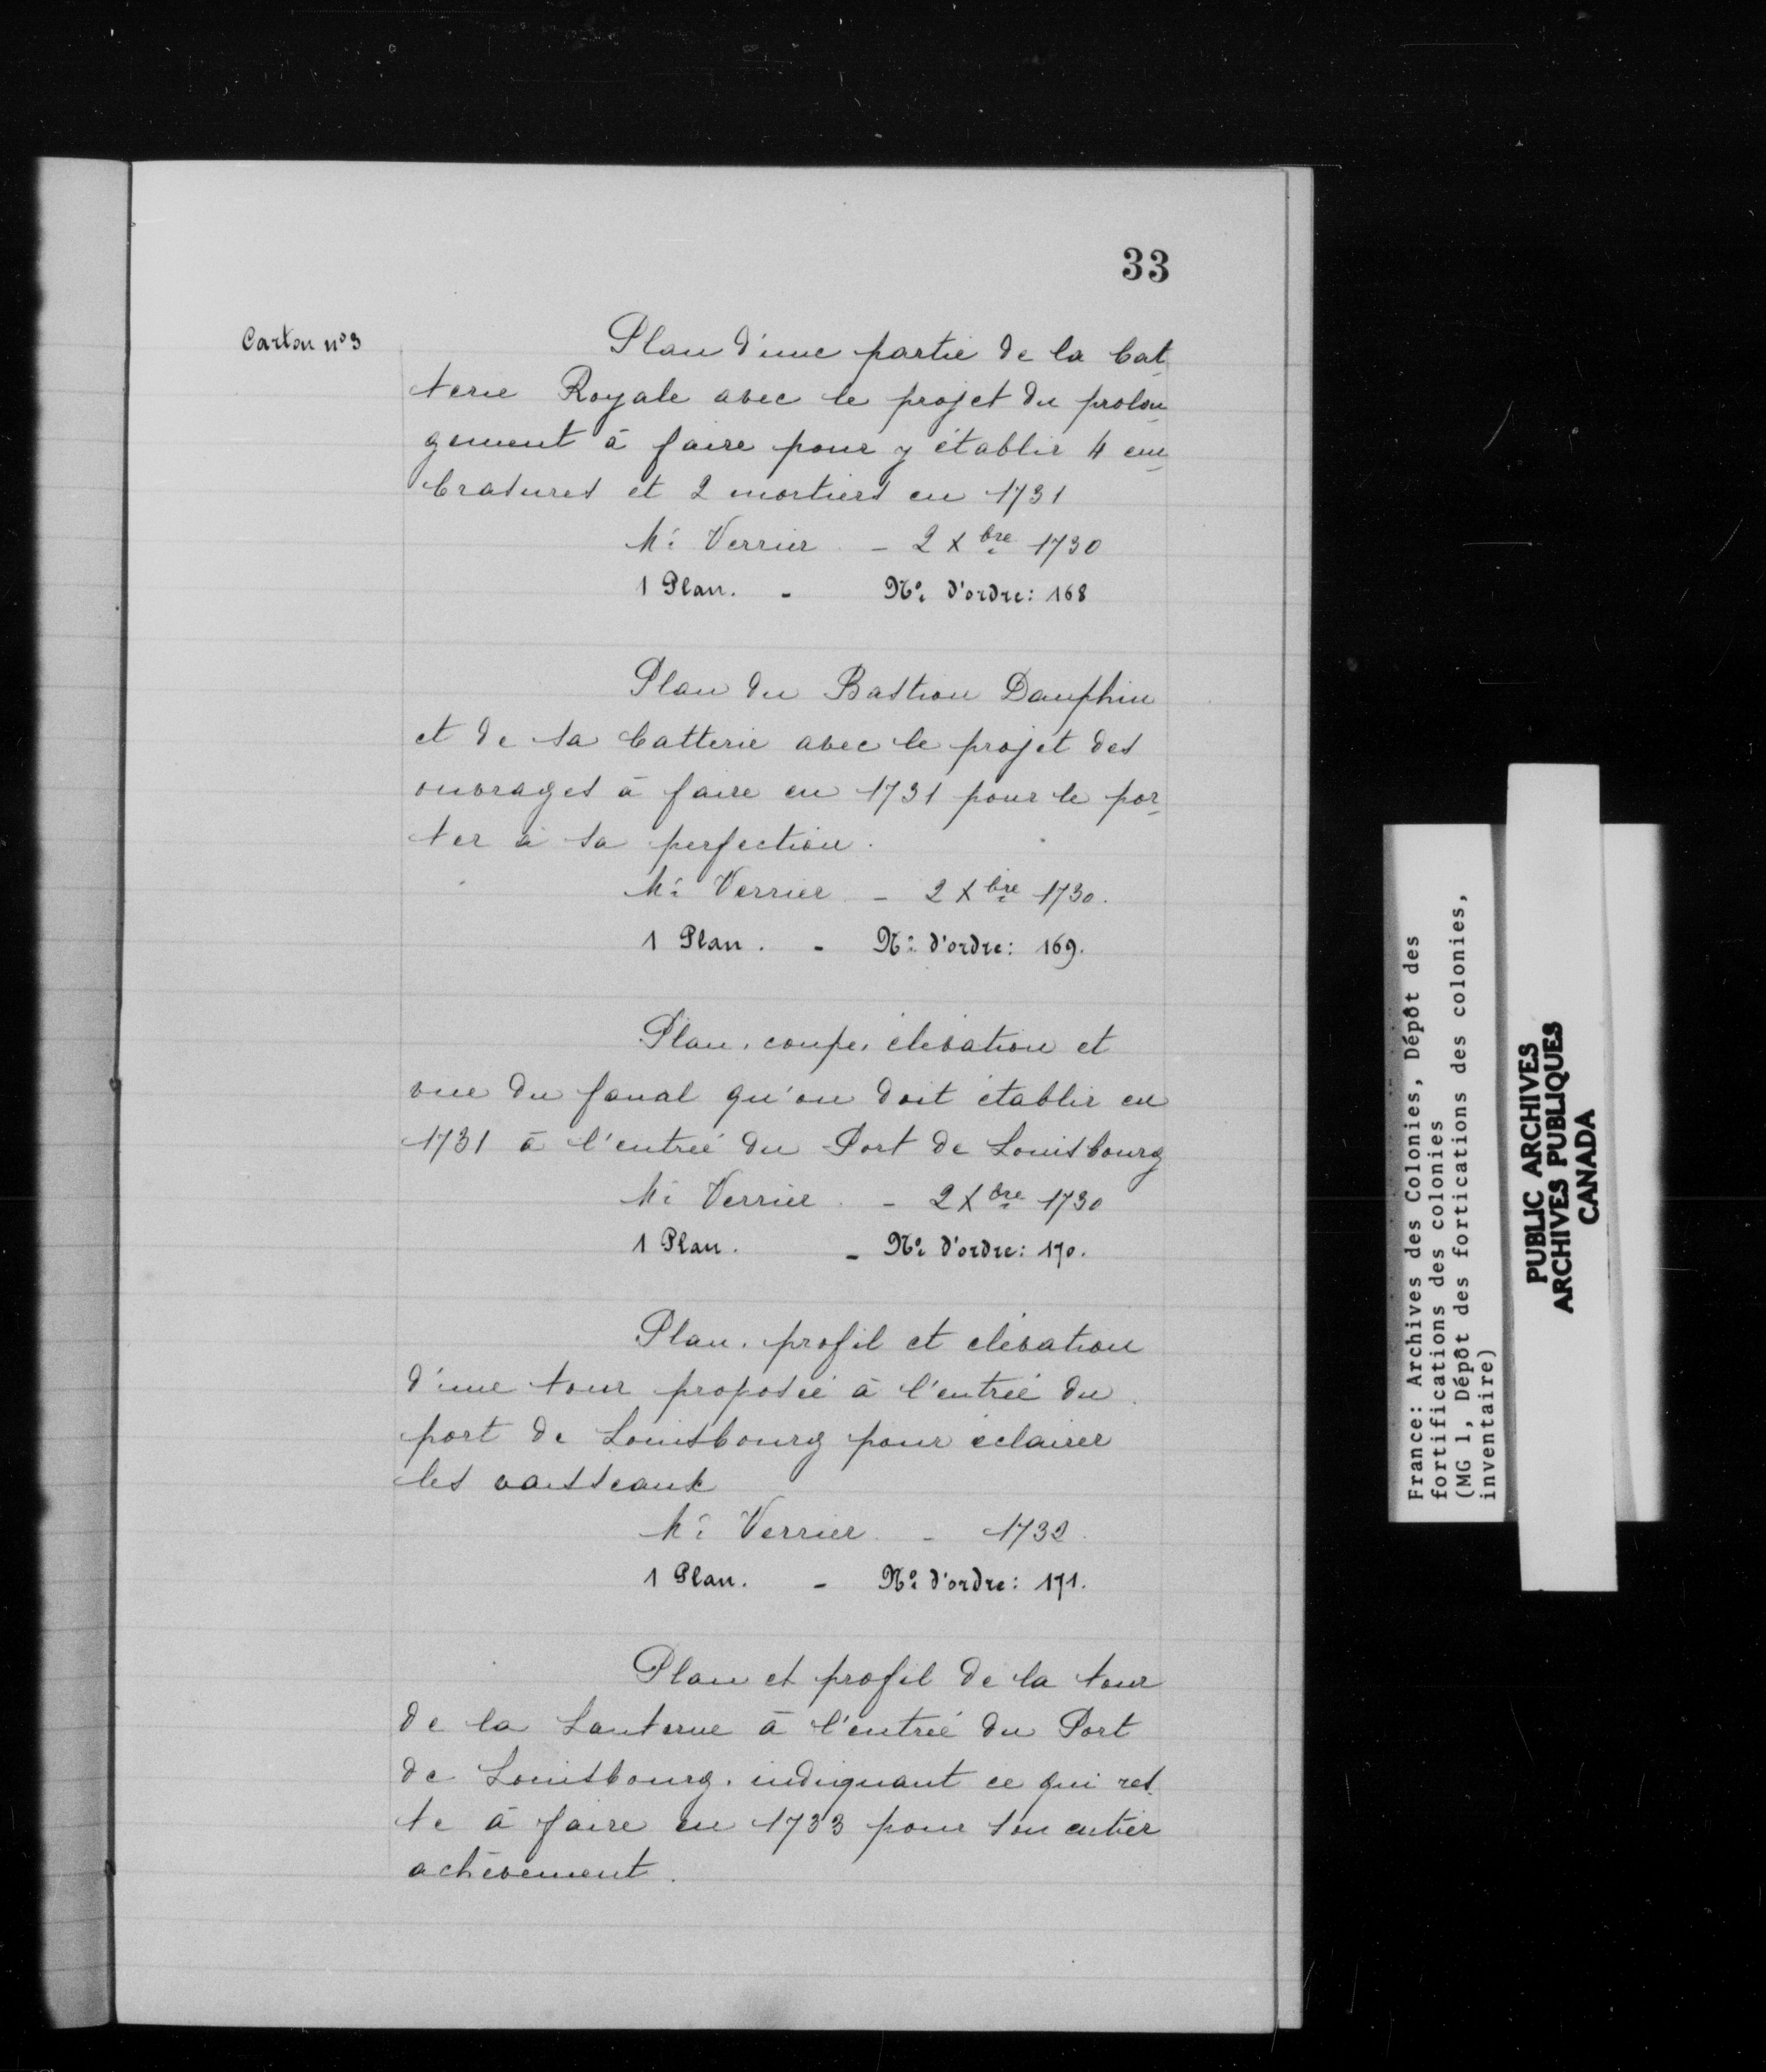 33
Carton nº 3
Plan d'une partie de la bat-
terie Royale avec le projet du prolon-
gement à faire pour y établir 4 em-
brasures et 2 mortiers en 1731
Mr Verrier - 2 Xbre 1730
1 Plan. - Nº d'ordre: 168
Plan du Bastion Dauphin
et de sa batterie avec le projet des
ouvrages à faire en 1731 pour le por-
ter à sa perfection.
Mr Verrier - 2 Xbre 1730.
1 Plan. - Nº d'ordre: 169.
Plan, coupe, élévation et
vue du fanal qu'on doit établir en
1731 à l'entrée du Port de Louisbourg
Mr Verrier - 2 Xbre 1730
1 Plan. - Nº d'ordre: 170.
Plan, profil et élévation
d'une tour proposée à l'entrée du
port de Louisbourg pour éclairer
les vaisseaux
Mr Verrier -
1 Plan. - Nº d'ordre: 171.
Plan et profil de la tour
de la Lanterne à l'entrée du Port
de Louisbourg, indiquant ce qui res-
te à faire en 1733 pour son entier
achèvement.
France: Archives des Colonies, Dépôt des
fortifications des colonies
(MG 1, Dépôt des fortications des colonies,
inventaire)
PUBLIC ARCHIVES
ARCHIVES PUBLIQUES
CANADA